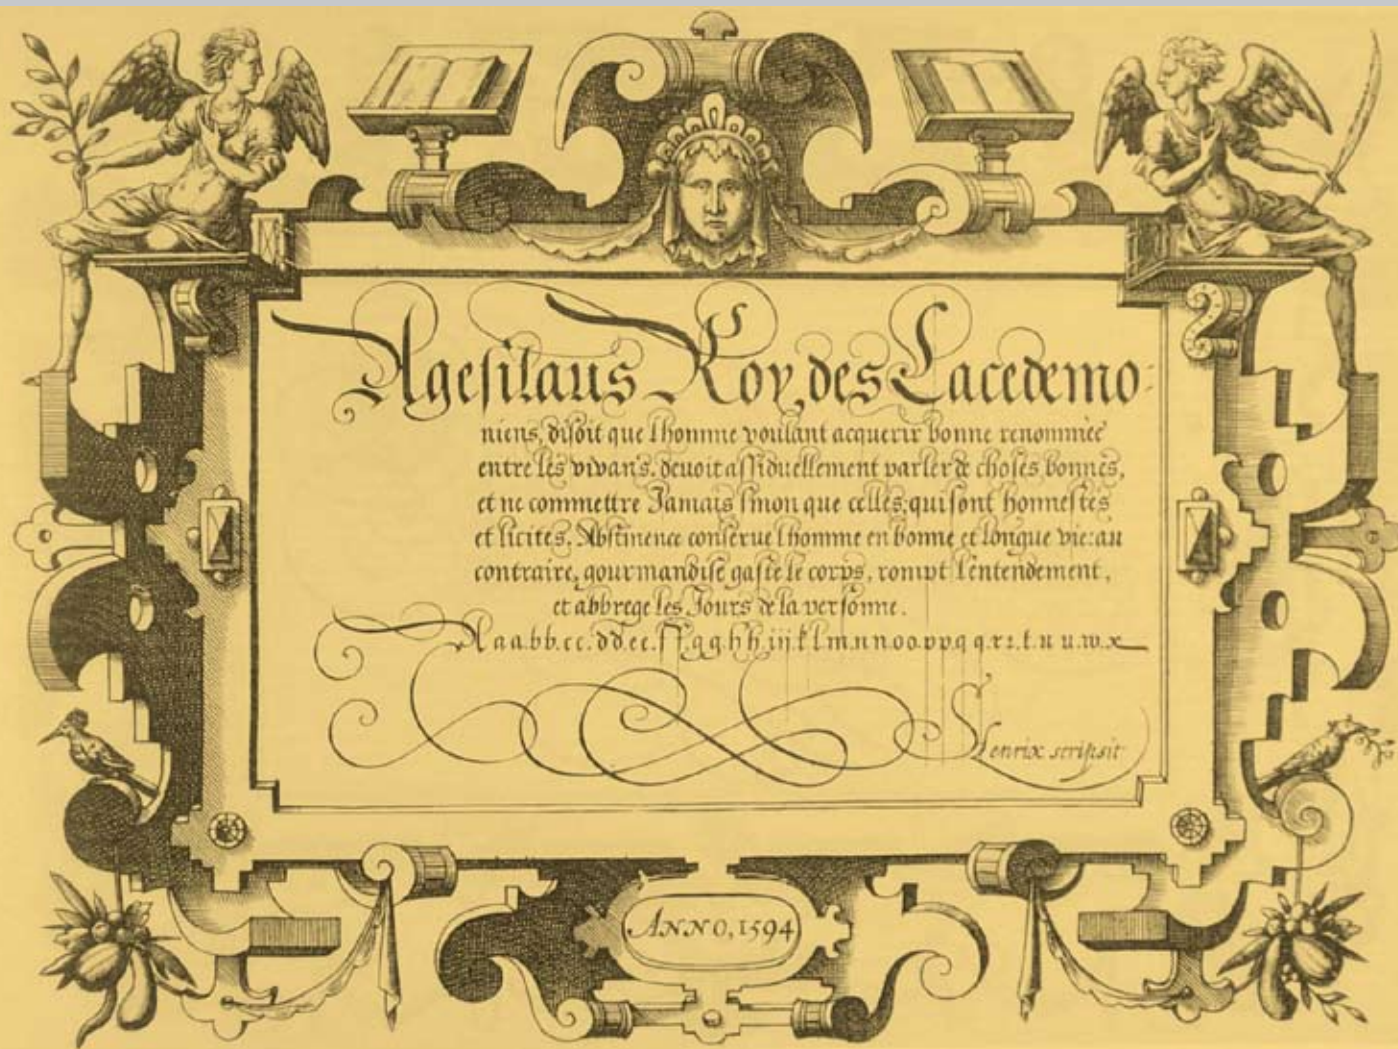 Agesilaus Roy, des Lacedemo:
niens, disoit que lhomme voulant acquerir bonne renommée
entre les vivans, devoit assiduellement parler de choses bonnes,
et ne commettre Jamais sinon que celles, qui sont honnestes
et licites. Abstinence conserue lhomme en bonne et longue vie: au
contraire, gourmandise gaste le corps, rompt lentendement,
et abbrege les Jours de la personne.
A a a. b b. c c. d d. e e. f f. g g. h h. i i j. k l m. n n o o. p p. q q. r. z. t. u u. w. x
Henrix scripsit
ANNO, 1594